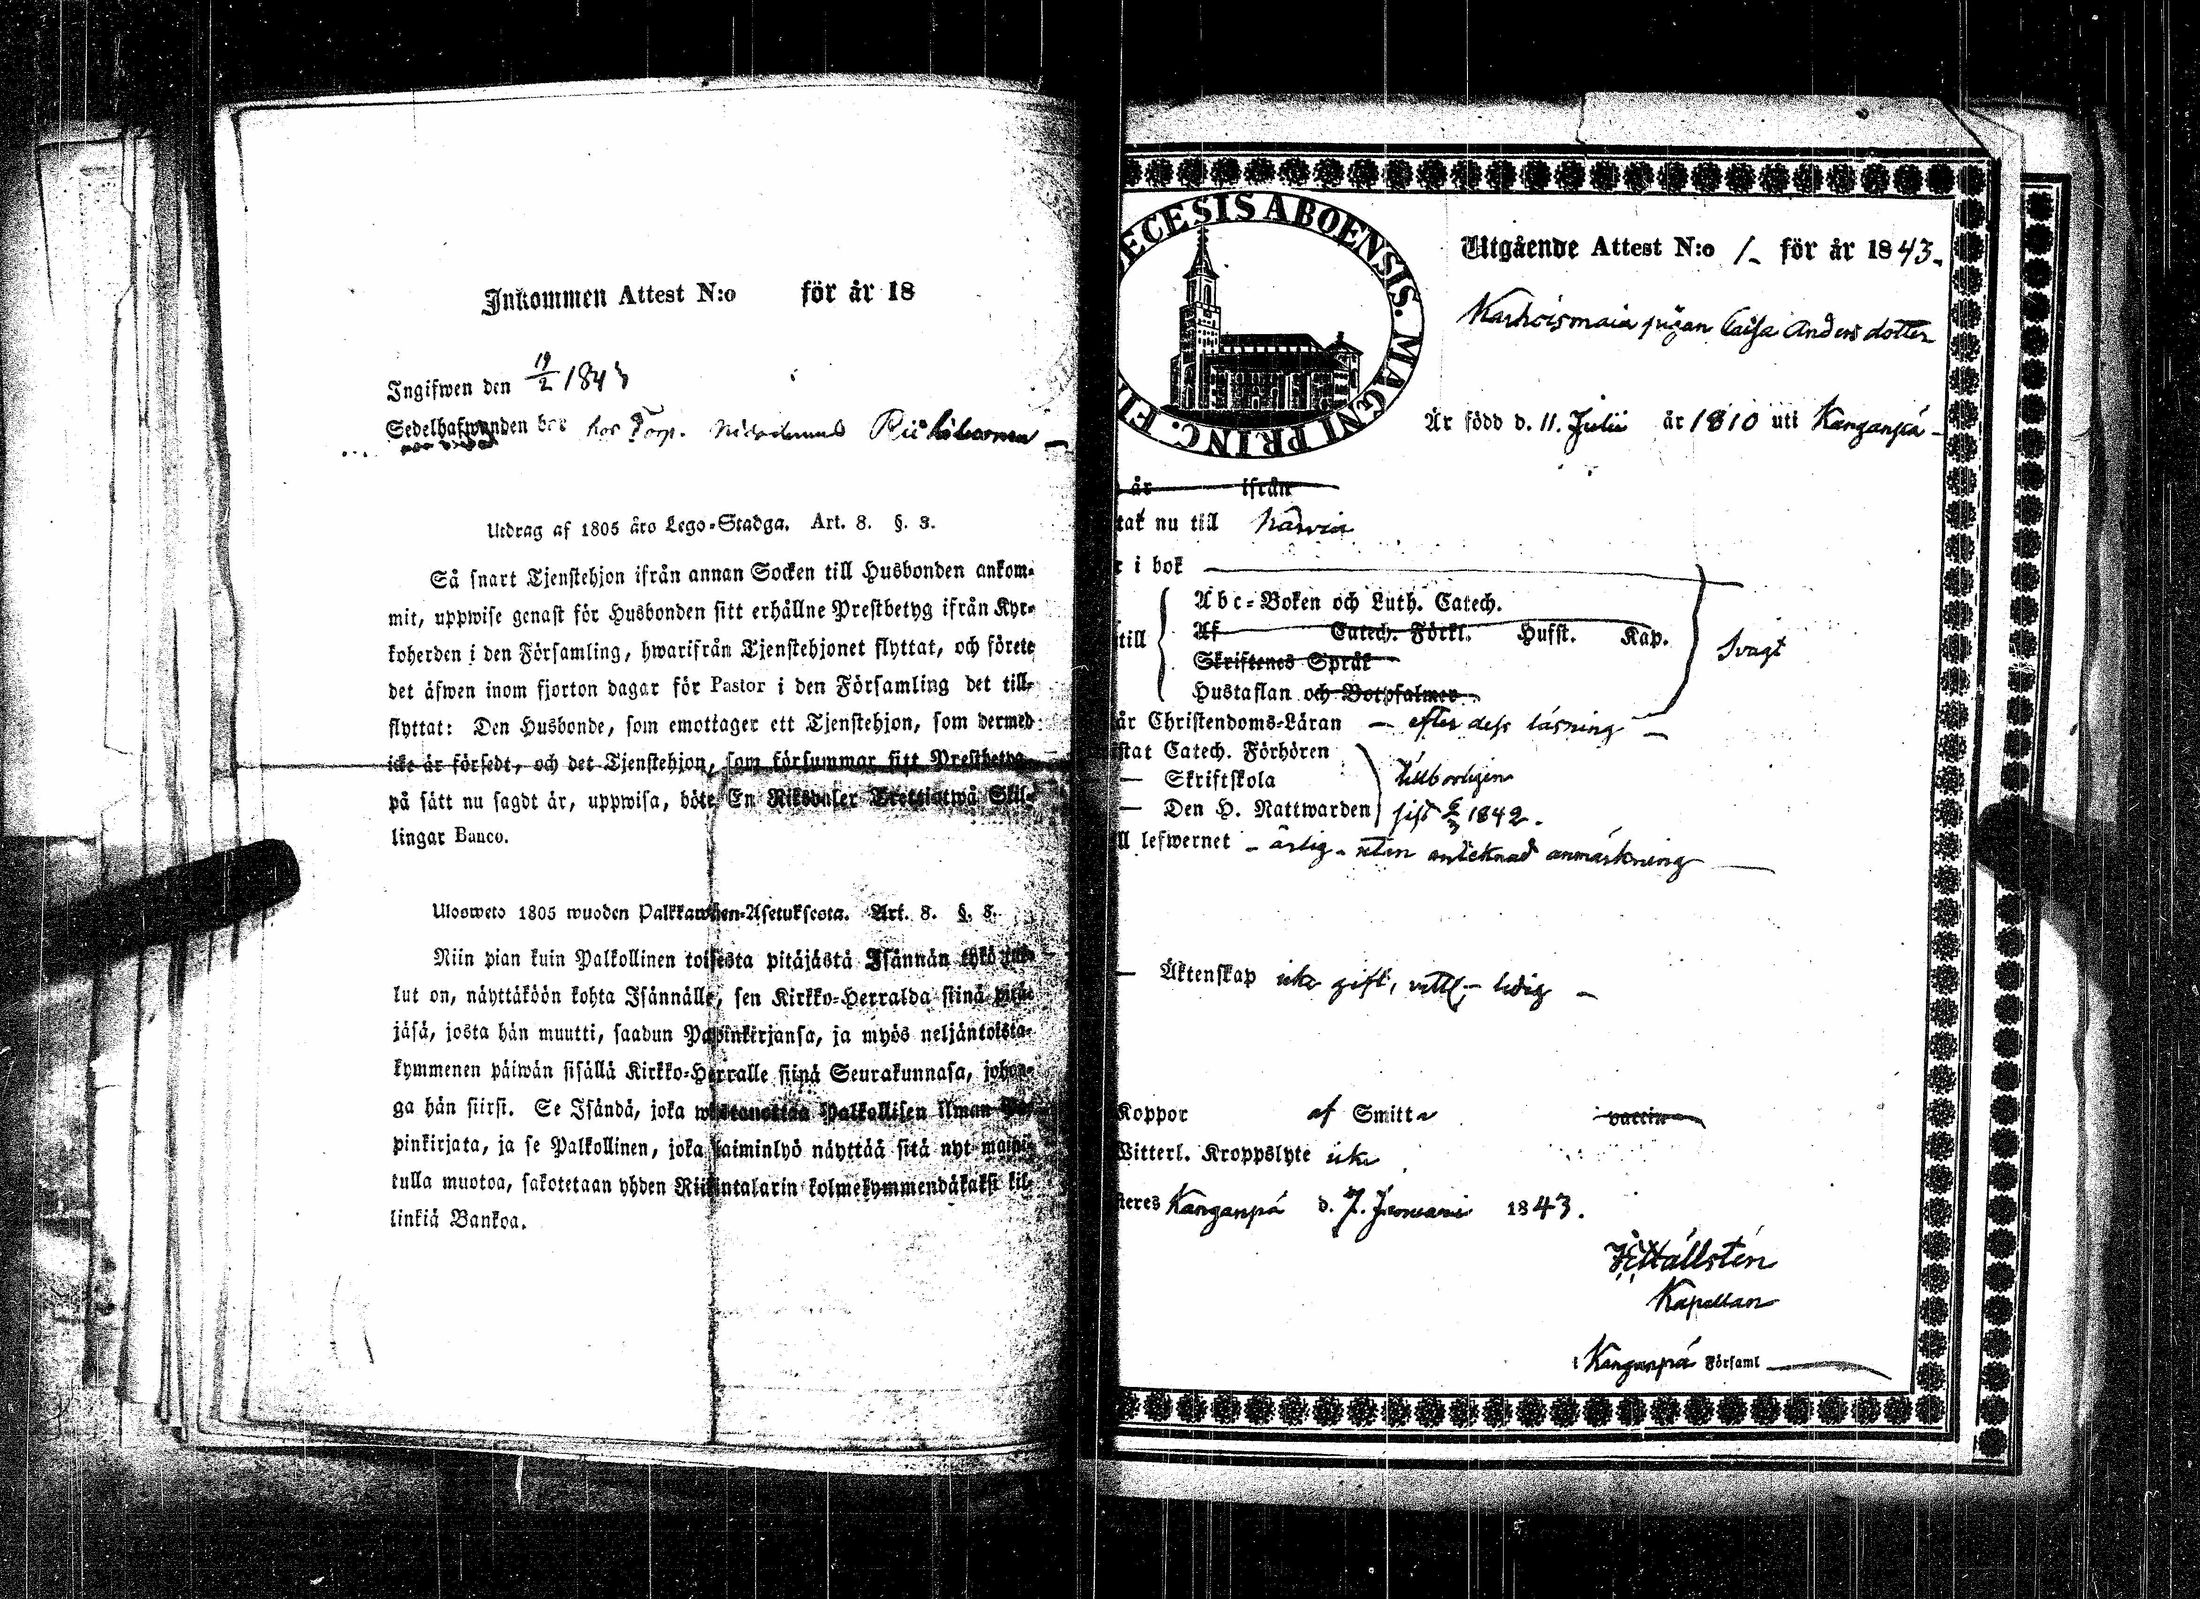 Inkommen Attest N:o för år 18
Ingifwen den 19/2 1843
Sedelhafwanden bor hos Torp.
Utdrag af 1805 års Lego-Stadga. Art. 8. §. 3.
Så snart Tjenstehjon ifrån annan Socken till Husbonden ankom-
mit, uppwise genast för Husbonden sitt erhållne Prestbetyg ifrån Kyr-
koherden i den Församling, hwarifrån Tjenstehjonet flyttat, och förete
det äfwen inom fjorton dagar för Pastor i den Församling det till-
flyttat: Den Husbonde, som emottager ett Tjenstehjon, som dermed
icke är försedt, och det Tjenstehjon, som försummar sitt Prestbetyg
på sätt nu sagdt är, uppwisa, böte En Riksdaler Trettiotwå Skil-
lingar Banco.
Ulosweto 1805 wuoden Palkkawäen-Asetuksesta. Art. 8. §. 3.
Niin pian kuin Palkollinen toisesta pitäjästä Isännän tykö tul-
lut on, näyttäköön kohta Isännälle, sen Kirkko-Herralda siinä pitä-
jäsä, josta hän muutti, saadun Papinkirjansa, ja myös neljäntoista-
kymmenen päiwän sisällä Kirkko-Herralle siinä Seurakunnasa, johon-
ga hän siirsi. Se Isändä, joka wastanottaa Palkollisen ilman Pa-
pinkirjata, ja se Palkollinen, joka laiminlyö näyttää sitä nyt maini-
tulla muotoa, sakotetaan yhden Riikintalarin kolmekymmendäkaksi kil-
linkiä Bankoa.
ECESIS ABOENSIS. MAGNI PRINC. FI
Utgående Attest N:o 1 för år 1843.
pigan Caisa Andersdotter
Är född d. 11. Julii år 1810 uti Kangaspä
år ifrån
tat nu till
r i bok
till
Abc-Boken och Luth. Catech.
Af Catech. Förkl. Husst. Kap.
Skriftenes Språk
Hustaflan och Botpsalmer
Svagt
år Christendoms-Läran efter dess läsning
istat Catech. Förhören
Skriftskola
Den H. Nattwarden
Tillbörligen
sist 6/3 1842.
ll lefwernet ärlig utan antecknad anmärkning
Äktenskap icke gift, vitterl. ledig
Koppor af Smitta vaccin
Witterl. Kroppslyte icke
steres Kangaspä d. 7. Januarii 1843.
Hällstén
Kapellan
i Kangaspä Församl